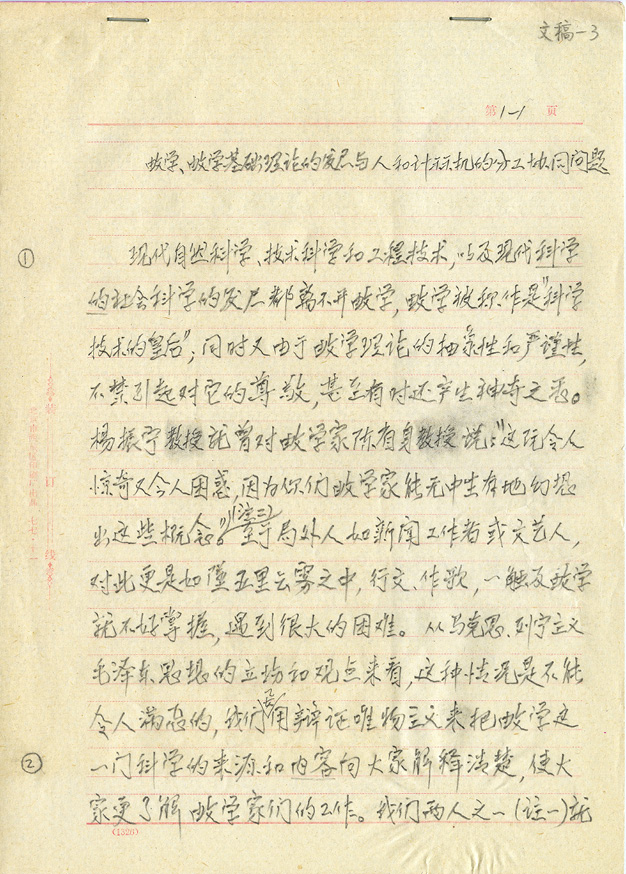 文稿-3
第1-1页
数学、数学基础理论的发展与人和计算机的分工协同问题
① 现代自然科学、技术科学和工程技术,以及现代科学
的社会科学的发展都离不开数学,数学被称作是"科学
技术的皇后";同时又由于数学理论的抽象性和严谨性,
不禁引起对它的尊敬,甚至有时还产生神奇之感。
杨振宁教授就曾对数学家陈省身教授说:"这既令人
惊奇又令人困惑,因为你们数学家能无中生有地幻想
出这些概念。"(注二)至于局外人如新闻工作者或文艺人,
对此更是如堕五里云雾之中,行文、作歌,一触及数学
就不好掌握,遇到很大的困难。从马克思列宁主义
毛泽东思想的立场和观点来看,这种情况是不能
令人满意的,我们应用辩证唯物主义来把数学这
② 一门科学的来源和内容向大家解释清楚,使大
家更了解数学家们的工作。我们两人之一(注一)就
(1326)
装
订
线